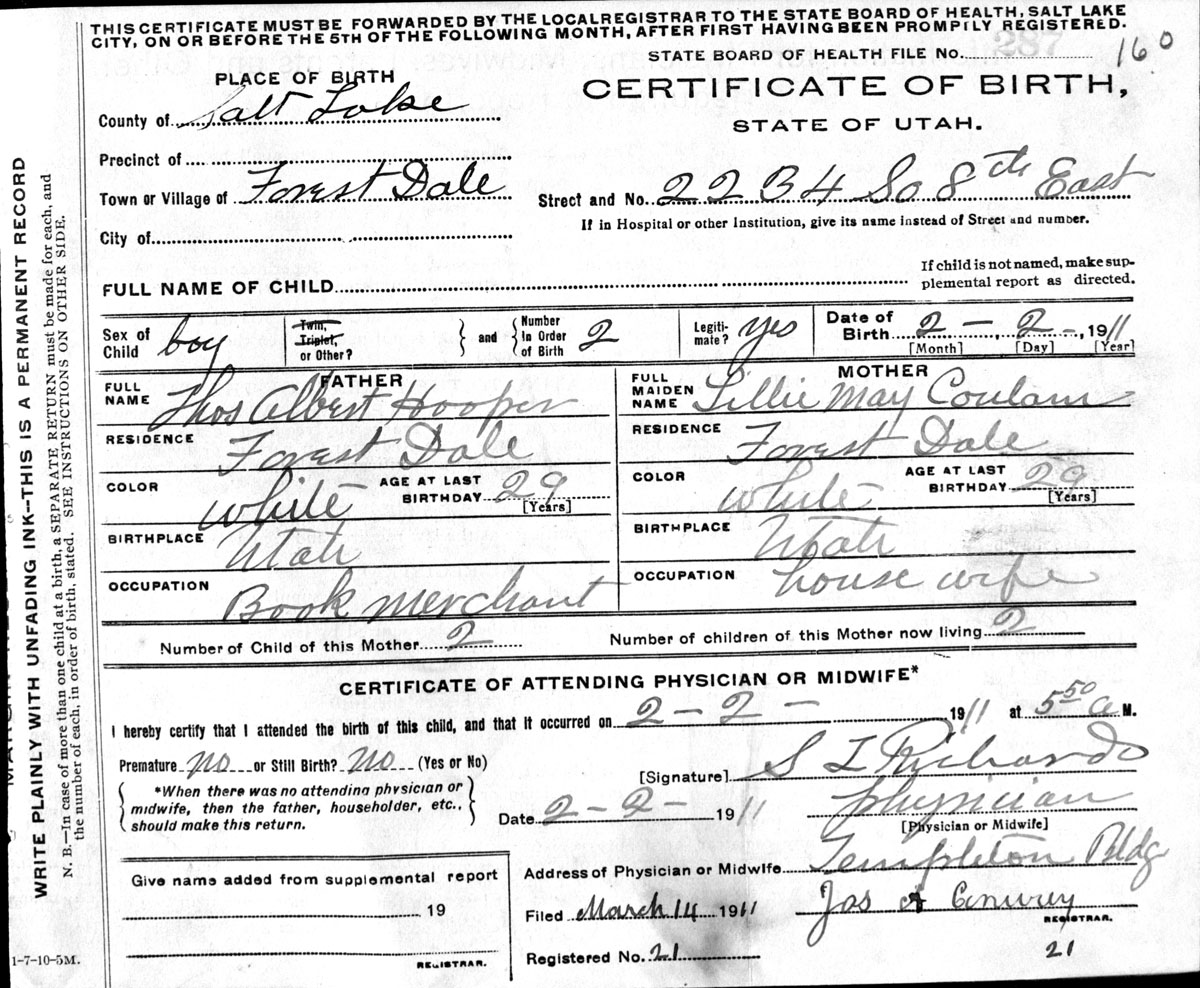 THIS CERTIFICATE MUST BE FORWARDED BY THE LOCAL REGISTRAR TO THE STATE BOARD OF HEALTH, SALT LAKE
CITY, ON OR BEFORE THE 5TH OF THE FOLLOWING MONTH, AFTER FIRST HAVING BEEN PROMPILY REGISTERED.
STATE BOARD OF HEALTH FILE No. 160
PLACE OF BIRTH
CERTIFICATE OF BIRTH,
County of Salt Lake
STATE OF UTAH.
Precinct of
Town or Village of Forest Dale
Street and No. 2234 So 8th East
If in Hospital or other Institution, give its name instead of Street and number.
City of
FULL NAME OF CHILD
If child is not named, make sup-
plemental report as directed.
Sex of Child boy
Twin, Triplet, or Other?
and
Number in Order of Birth 2
Legiti-mate? yes
Date of Birth 2 - 2 -, 1911
[Month] [Day] [Year]
FATHER
MOTHER
FULL NAME Thos Albert Hooper
FULL MAIDEN NAME Lillie May Coulam
RESIDENCE Forest Dale
RESIDENCE Forest Dale
COLOR white
AGE AT LAST BIRTHDAY 29
[Years]
COLOR white
AGE AT LAST BIRTHDAY 29
[Years]
BIRTHPLACE Utah
BIRTHPLACE Utah
OCCUPATION Book merchant
OCCUPATION house wife
Number of Child of this Mother 2
Number of children of this Mother now living 2
CERTIFICATE OF ATTENDING PHYSICIAN OR MIDWIFE*
I hereby certify that I attended the birth of this child, and that it occurred on 2 - 2 - 1911 at 5 50 a M.
Premature no or Still Birth? no (Yes or No)
[Signature] S L Richards
*When there was no attending physician or
midwife, then the father, householder, etc.,
should make this return.
Date 2 - 2 - 1911
physician
[Physician or Midwife]
Give name added from supplemental report
19
REGISTRAR.
Address of Physician or Midwife Templeton Bldg
Filed March 14 1911
Jas A
REGISTRAR.
Registered No. 21
21
WRITE PLAINLY WITH UNFADING INK--THIS IS A PERMANENT RECORD
N. B.—In case of more than one child at a birth, a SEPARATE RETURN must be made for each, and
the number of each, in order of birth, stated. SEE INSTRUCTIONS ON OTHER SIDE.
1-7-10-5M.